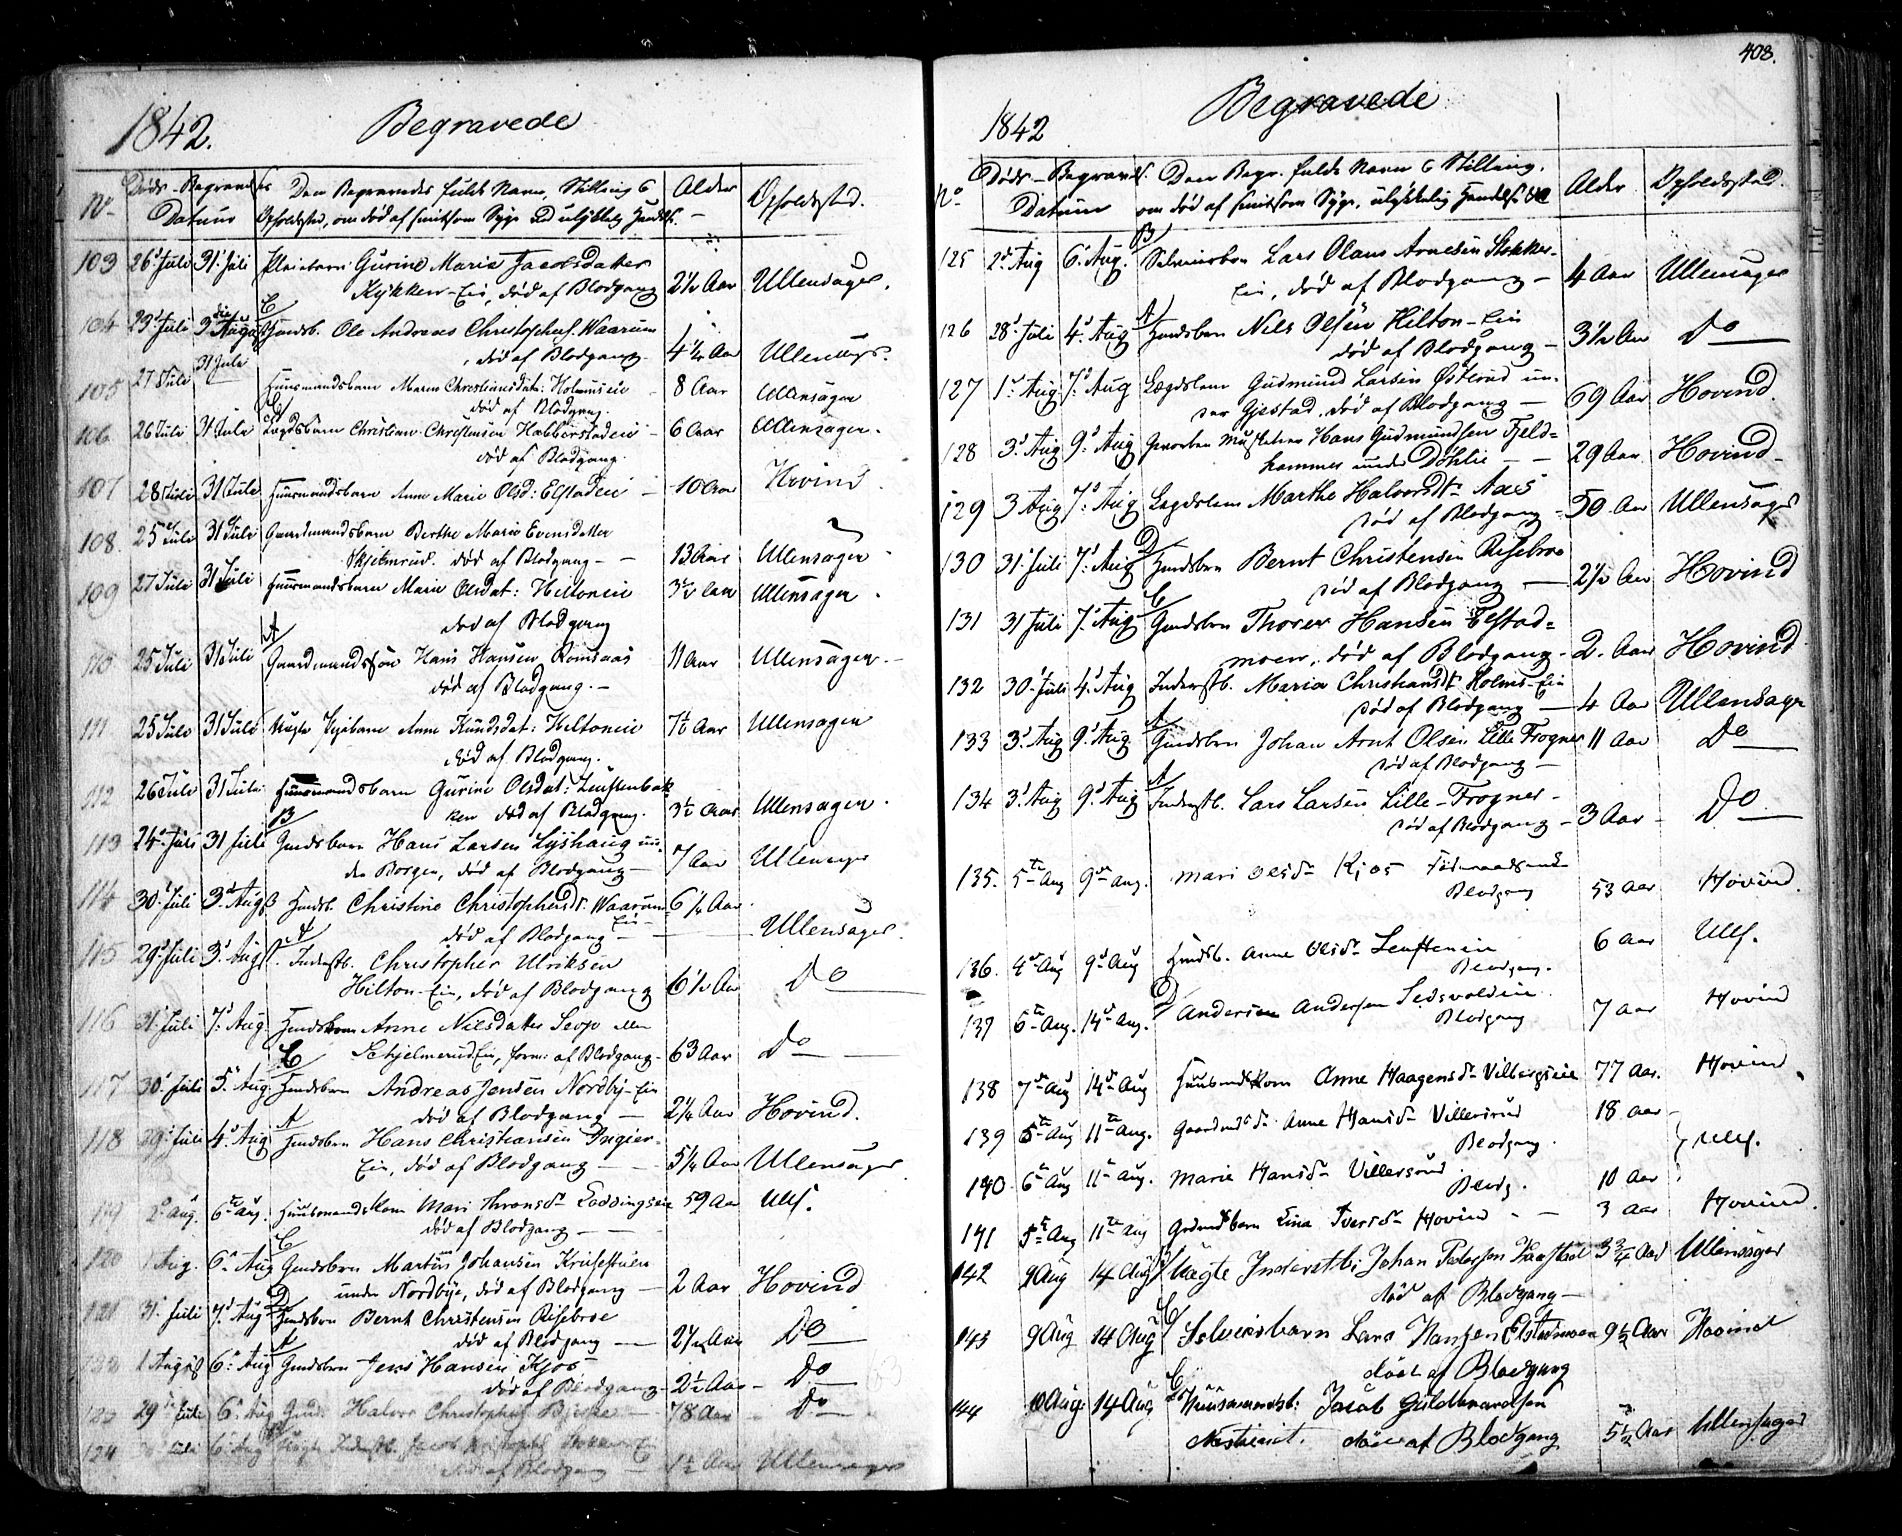 1842.
Begravede
No
Døds- Begravelses
Datum
Den Begravedes fulde Navn, Stilling &
Opholdssted, om død af smitsom Syge ved ulykkelig Hændelse
Alder
Opholdssted.
103 26d Juli 31 Juli Pleiebarn Gurine Marie Jacobsdatter
Kykken-Eie, død af Blodgang 2½ Aar Ullensager.
104 29d Juli 3d Aug C Huusb. Ole Andreas Christophers. Waarum
, død af Blodgang. 4½ Aar Ullensags.
105 27 Juli 31 Juli Huusmandsbarn Maren Christiansdat: Holmseie 8 Aar Ullensager
død af Blodgang.
106 26 Juli 31 Juli Lægdsbarn Christian Christensen Habberstadeie 6 Aar Ullensager.
død af Blodgang.
107 28 Juli 31 Juli Huusmandsbarn Anne Marie Olsd: Elstadeie 10 Aar Hovind
108. 25 Juli 31 Juli Gaardmandsbarn Berthe Marie Evensdatter
Skjelmerud. død af Blodgang - 13 Aar Ullensager
109 27 Juli 31 Juli Huusmandsbarn Marie Olsdat: Hiltoneie 3½ Aar Ullensager.
død af Blodgang
110 25 Juli 31 Juli A Gaardmandssøn Hans Hansen Romsaas 11 Aar Ullensager. -
død af Blodgang. -
111 25 Juli 31 Juli Uægte Pigebarn Anne Knudsdat: Hiltoneie 7½ Aar Ullensager
død af Blodgang.
112 26 Juli 31 Juli Huusmandsbarn Gurine Olsdat: Leuftenbak
ken død af Blodgang. 3½ Aar Ullensager.
113 24d Juli 31 Juli B Gmdsbarn Hans Larsen Lyshaug un-
der Borgen, død af Blodgang - 7 Aar Ullensager
114 30d Juli 3d Aug Husb. Christine Christophersdr. Waarum- 6¼ Aar
Eie
død af Blodgang - Ullensager.
115 29d Juli 3d Aug A Inderstb. Christopher Ulriksen
Hilton-Eie, død af Blodgang 6½ Aar Do
116 31d Juli 7d Aug Huuskone Anne Nilsdatter Seojo eller
Schjelmerud Eie, form: af Blodgang - 63 Aar Do
117 30d Juli 5d Aug C Husbrn Andreas Jensen Nordby-Eie
død af Blodgang - 2¼ Aar Hovind.
118 29d Juli 4d Aug A Husbrn Hans Christiansen Ingier-
Eie, død af Blodgang - 5¼ Aar Ullensager
119 2d Aug. 6te Aug. Huusmandskone Mari Thronsdr Loddingseie 59 Aar Ulls.
død af Blodgang
120 1 Aug. 6d Aug C Gmdsbrn Martin Johansen Krusestuen
under Nordbye, død af Blodgang - 2 Aar Hovind
121 31. Juli 7d Aug D Husbrn Bernt Christensen Risebroe
død af Blodgang - 2½ Aar Do
122 1 Aug 6d Aug A Gmdsbrn Jens Hansen Kjos
død af Blodgang - 2½ Aar - Do
123 29 Juli 6d Aug Gmd. Halvor Christophers Bjerke - 78 Aar Do
124 Juli 6 Aug Uægte Inderstb. Jacob Kristophs Stokker Eie
død af Blodgang - 1½ Aar Ullensager
408.
1842
Begravede
No
Døds- Begravels.
Datum
Den Begr. fulde Navn & Stilling,
om død af smitsom Syge, ulykkelig Hændelse &c
Alder
Opholdssted.
125 2d Aug 6d Aug. B Selveierbrn Lars Olaus Arnesen Stokker-
Eie, død af Blodgang - 4 Aar Ullensager
126 28d Juli 4d Aug A Husbrn Nils Olsen Hilton-Eie
død af Blodgang - 3½ Aar Do
127 1d Aug 7d Aug Lægdslem Gudmund Larsen Østerud un-
der Gjestad, død af Blodgang - 69 Aar Hovind.
128 3d Aug 9d Aug Gevorben Musketeer Hans Gudmundsen Fjeld=
hammer under Døhlie - - 29 Aar Hovind
129 3 Aug 7d Aug Lægdslem Marthe Halvorsdtr Aas
død af Blodgang - 50 Aar Ullensager
130 31d Juli 7d Aug D Husbrn Bernt Christensen Risebroe
død af Blodgang - 2½ Aar Hovind
131 31 Juli 7d Aug C Gmdsbrn Thorer Hansen Elstad=
moen, død af Blodgang - 2. Aar Hovind
132 30d Juli 4d Aug Inderstb. Maria Christiansdtr Holms-Eie
død af Blodgang - 4 Aar Ullensager
133 3d Aug 9d Aug A Gmdsbrn Johan Arnt Olsen Lille Frogner 11 Aar Do
død af Blodgang -
134 3d Aug 9d Aug A Inderstb. Lars Larsen Lille-Frogner -
død af Blodgang - 3 Aar - Do
135. 5te Aug 9de Aug. Mari Olsdr Kjos
Blodgang 53 Aar Hovind.
136. 4de Aug 9de Aug Husdb. Anne Olsdr Leuftenin 6 Aar Ulls.
Blodgang.
137 6te Aug. 14de Aug. D Andersine Andersen Sedsvoldeie
Blodgang 7 Aar Hovind
138 7de Aug 14de Aug Huusmdskone Anne Haagensdr Vilbergseie 77 Aar. Hovind.
139 5te Aug 11te Aug. Gaardmdsdr Anne Hansdr Villersrud 18 Aar
Blodgang. Ulls.
140 6te Aug 11te Aug. Marie Hansdr Villersrud.
Blodg. 10 Aar
141 5te Aug 11te Aug Grdmdsbarn Lina Iversdr Hovind - - 3 Aar Hovind.
142 9 Aug 14 Aug Uægte Inderstb: Johan Pedersen Haastad 3¾ Aar Ullensager
død af Blodgang -
143 9 Aug 14 Aug C Selveierbarn Lars Hansen Elstadmoen 9½ Aar Hovind
død af Blodgang
144 10 Aug 14 Aug C Huusmandsb: Jacob Guldbrandsen
død af Blodgang 5½ Aar Ullensager